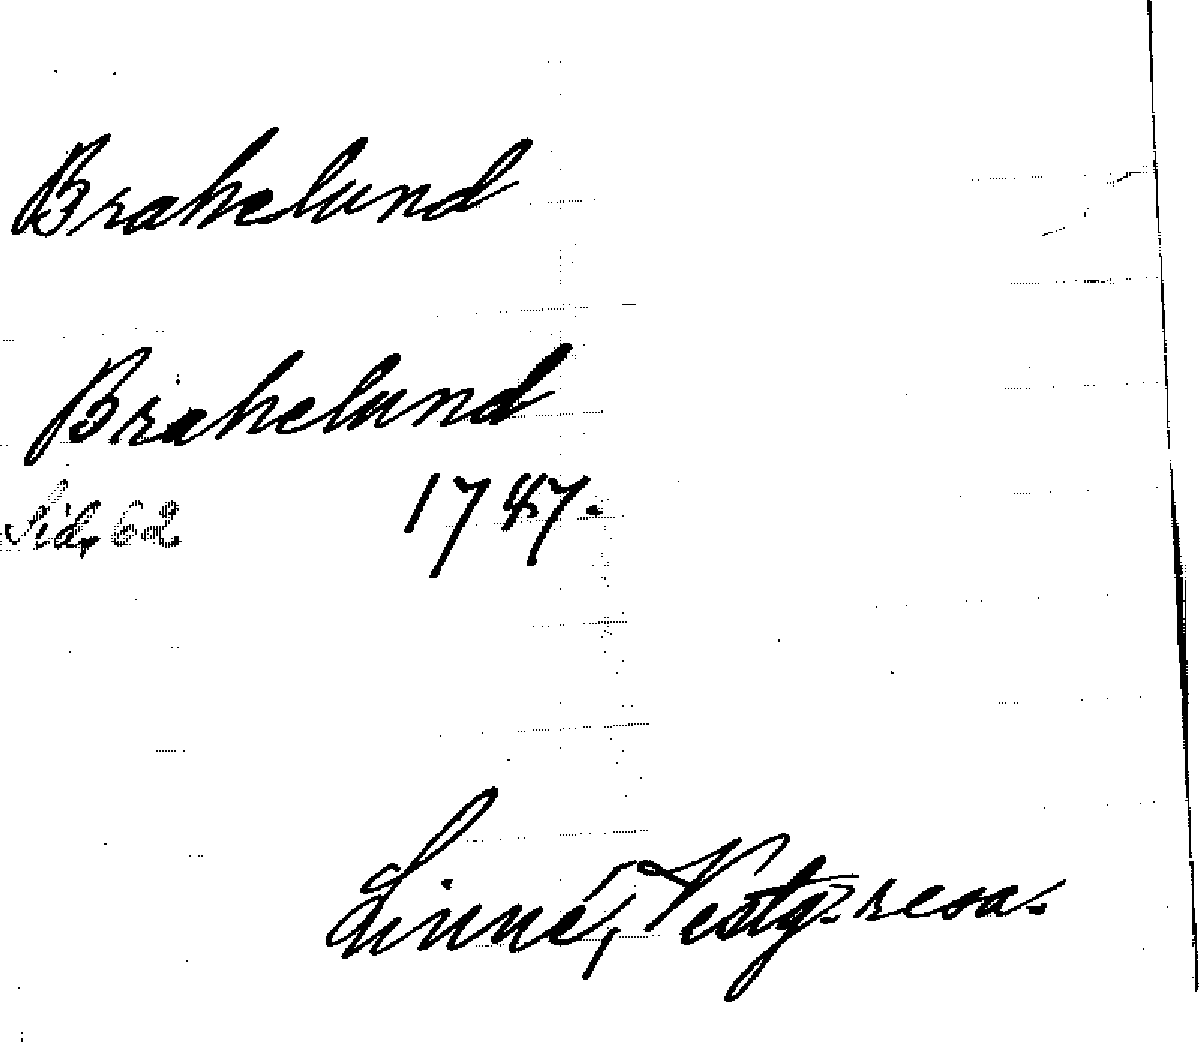 Brahelund
Brahelund
Sid. 62 1747.
Linné, Vestg. resa.